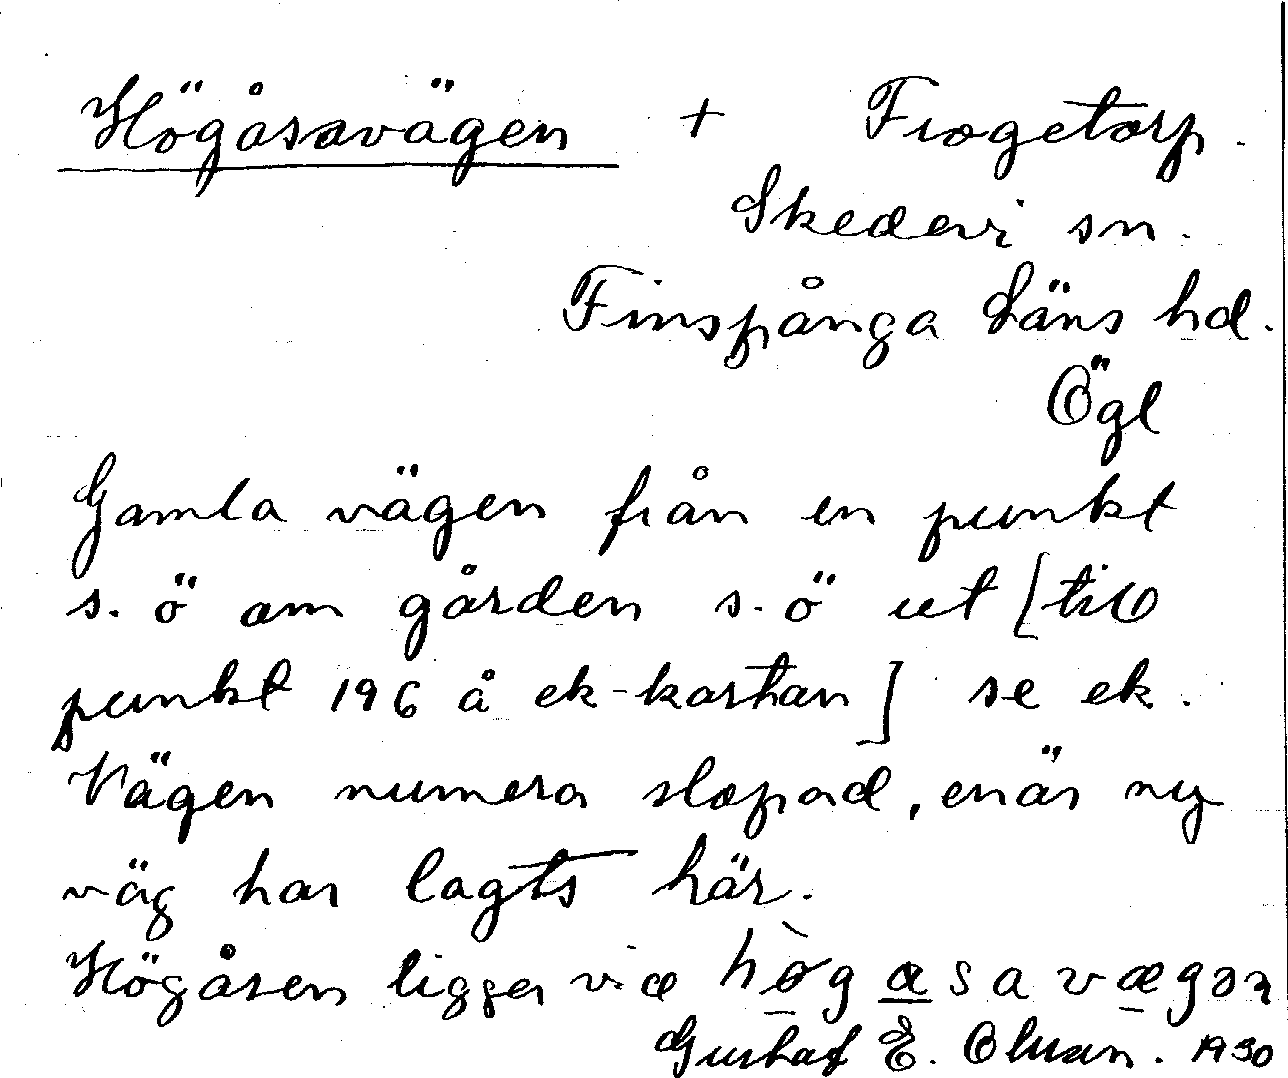 Högåsavägen + Frogetorp.
Skedevi sn.
Finspånga läns hd.
Ögl
Gamla vägen från en punkt
s. ö om gården s. ö ut [till
punkt 196 å ek-kartan] se ek.
Vägen numera slopad, enär ny
väg har lagts här.
Högåsen ligger vid
Gustaf E. Olsson. 1930